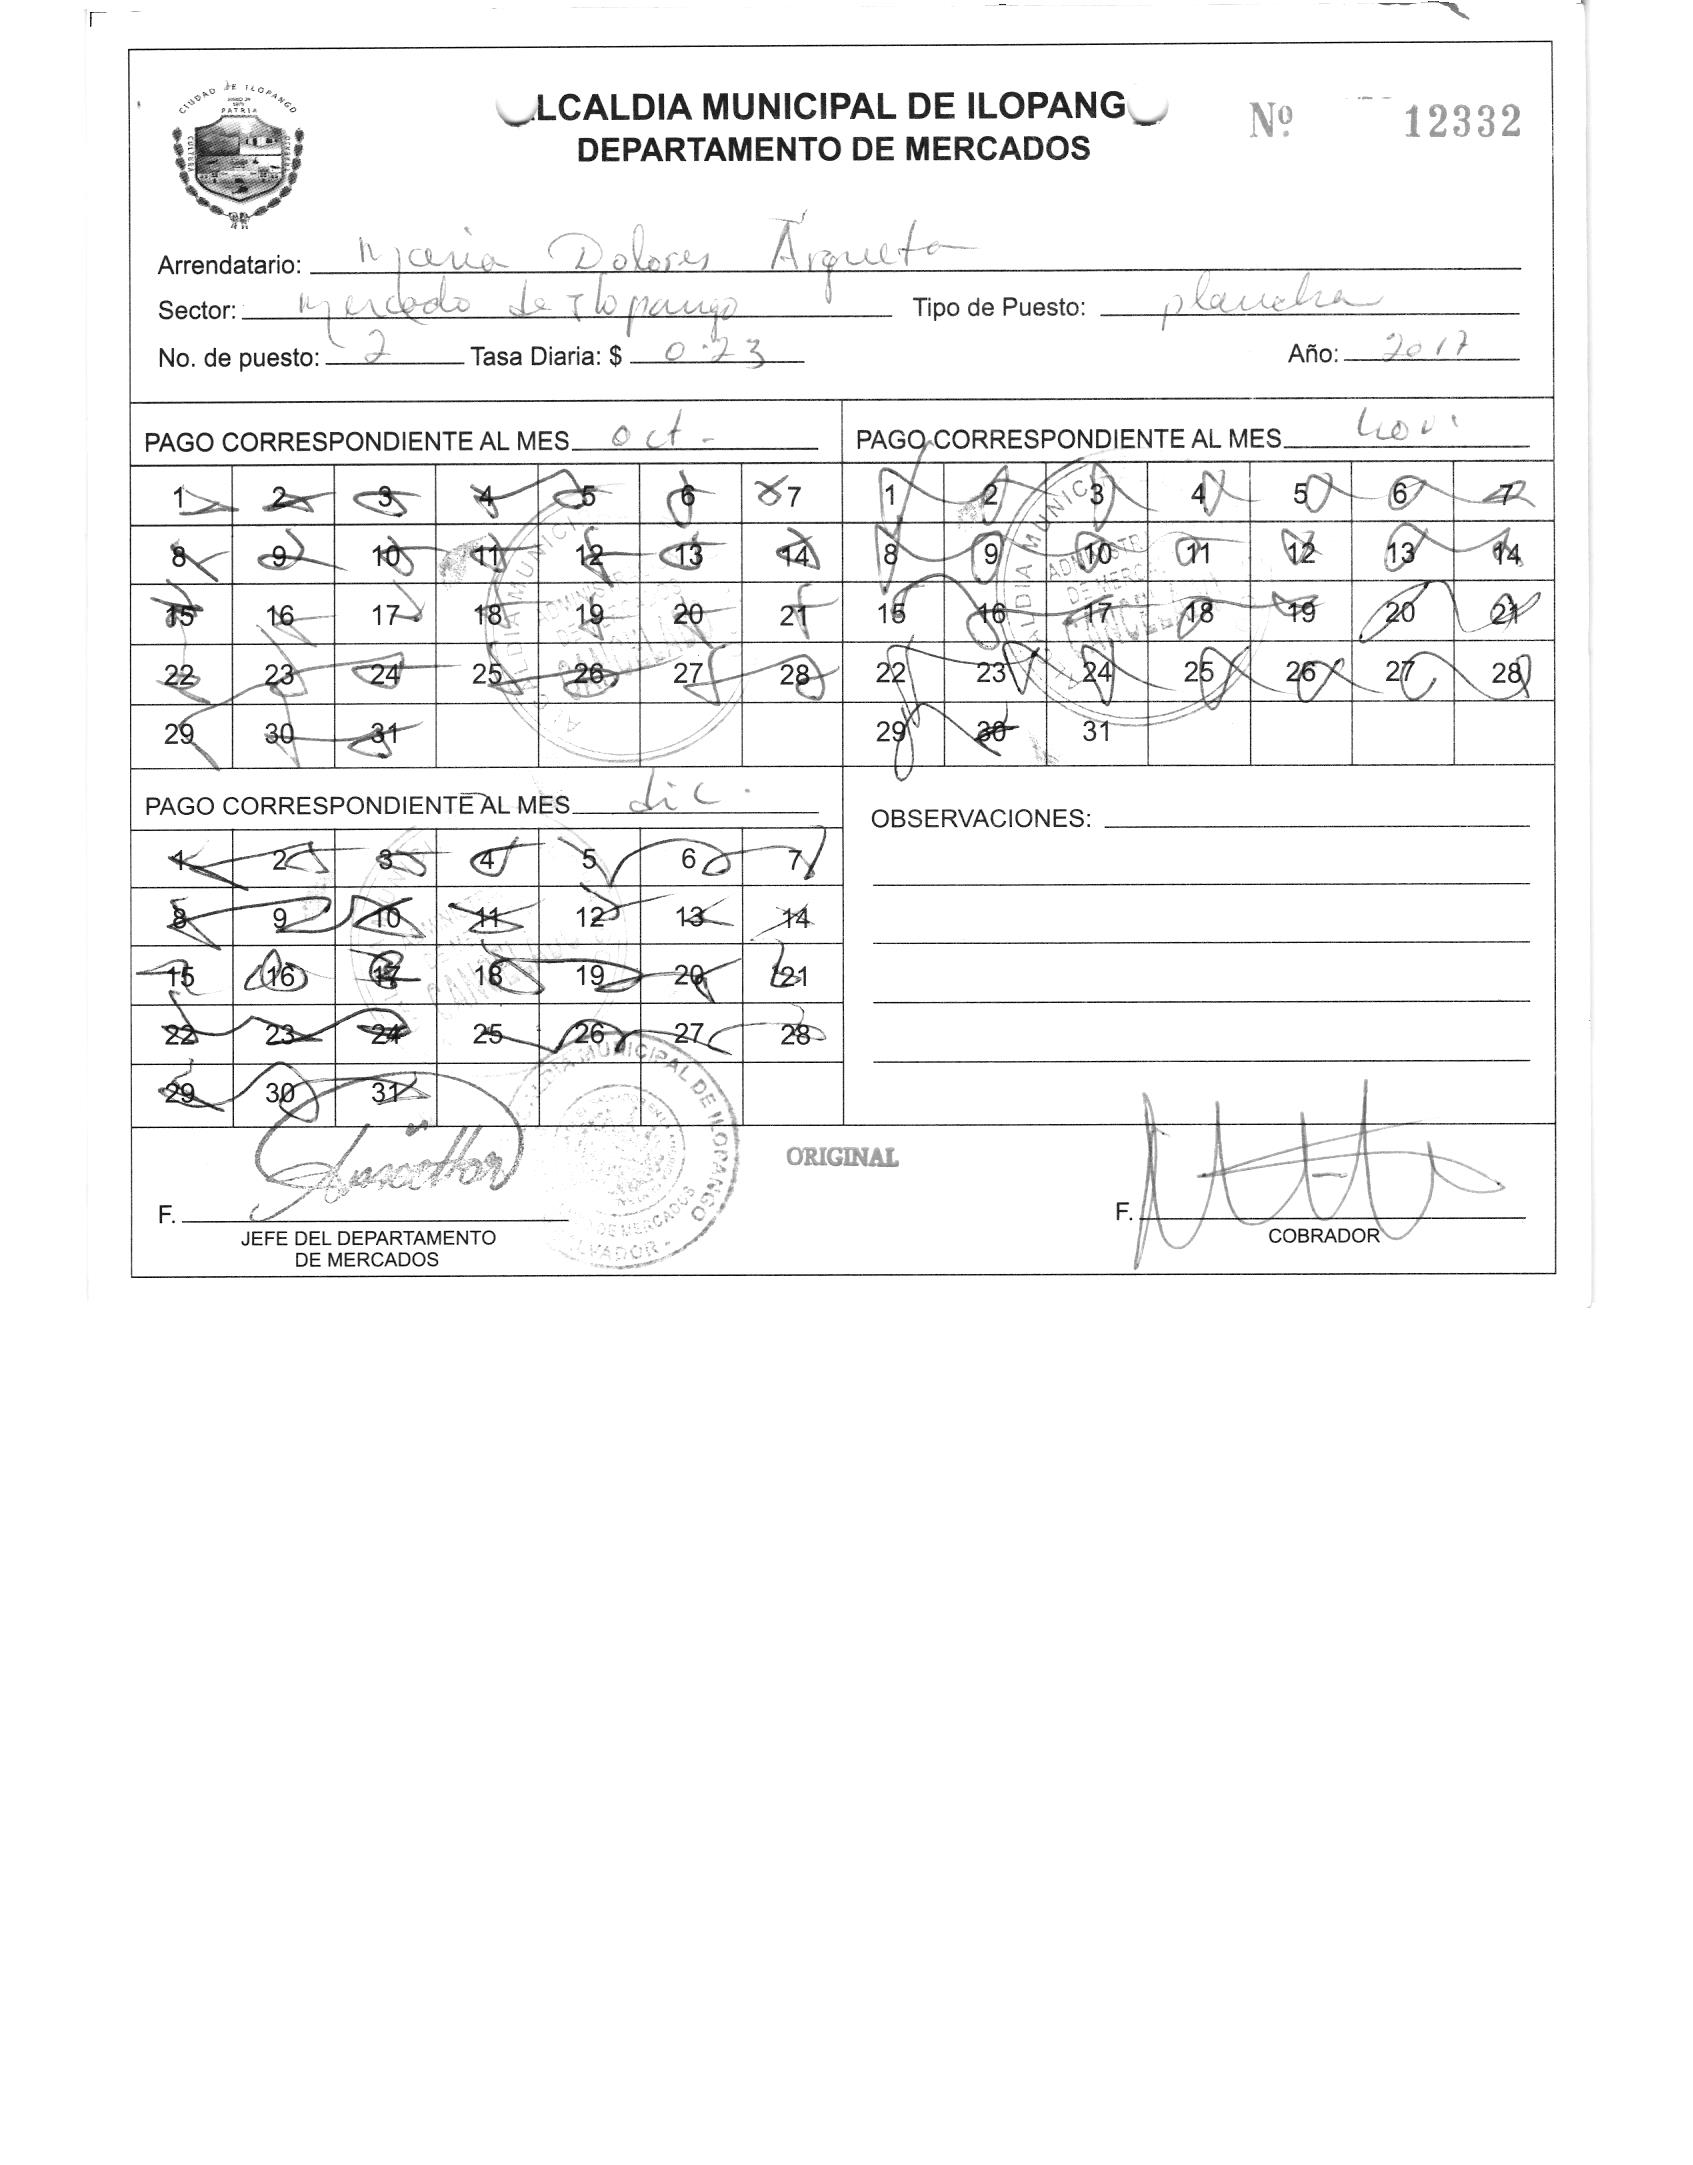 CIUDAD DE ILOPANGO
PATRIA
CULTURA
ALCALDIA MUNICIPAL DE ILOPANG
DEPARTAMENTO DE MERCADOS
Nº 12332
Arrendatario: Maria Dolores Argueta
Sector: Mercado de Ilopango Tipo de Puesto: plancha
No. de puesto: 2 Tasa Diaria: $ 0.23 Año: 2017
PAGO CORRESPONDIENTE AL MES oct. PAGO CORRESPONDIENTE AL MES nov.
1 2 3 4 5 6 7 1 2 3 4 5 6 7
8 9 10 11 12 13 14 8 9 10 11 12 13 14
15 16 17 18 19 20 21 15 16 17 18 19 20 21
22 23 24 25 26 27 28 22 23 24 25 26 27 28
29 30 31 29 30 31
PAGO CORRESPONDIENTE AL MES dic. OBSERVACIONES:
1 2 3 4 5 6 7
8 9 10 11 12 13 14
15 16 17 18 19 20 21
22 23 24 25 26 27 28
29 30 31
ALCALDIA MUNICIPAL DE ILOPANGO
DE MERCADOS
ORIGINAL
F. F.
JEFE DEL DEPARTAMENTO COBRADOR
DE MERCADOS